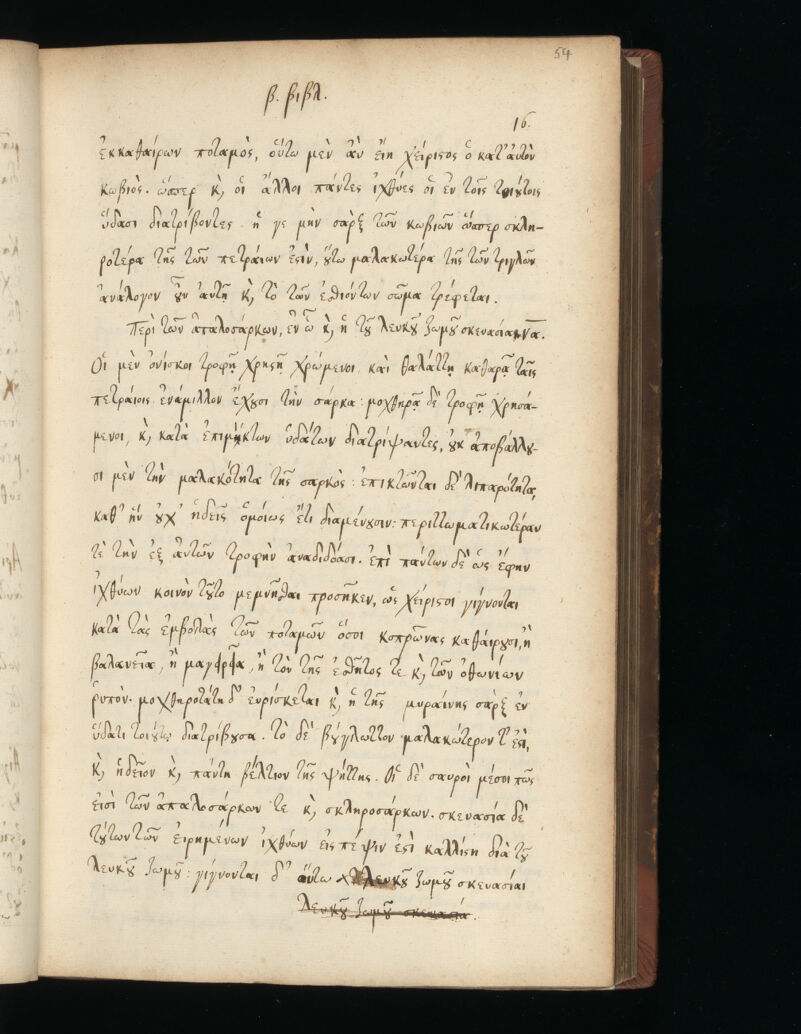 54
β. βιβλ.
16.
ἐκκαθαίρων ποταμὸς, οὕτω μὲν ἂν εἴη χείριστος ὁ κατ' αὐτὸν
κωβιὸς. ὥσπερ κ, οἱ ἄλλοι πάντες ἰχθύες οἱ ἐν τοῖς τοιούτοις
ὕδασι διατρίβοντες. ἡ γε μὴν σὰρξ τῶν κωβιῶν ὥσπερ σκλη-
ροτέρα τῆς τῶν πετραίων ἐστὶν, οὕτω μαλακωτέρα τῆς τῶν τριγλῶν
ἀνάλογον οὖν αὐτῇ κ, τὸ τῶν ἐσθιόντων σῶμα τρέφεται.
Περὶ τῶν ἁπαλοσάρκων, ἐν ᾧ κ, ἡ τοῦ λευκοῦ ζωμοῦ σκευασία. να.
Οἱ μὲν ὀνίσκοι τροφῇ χρηστῇ χρώμενοι, καὶ θαλάττῃ καθαρᾷ ταῖς
πετραίοις ἐνάμιλλον ἔχουσι τὴν σάρκα: μοχθηρᾷ δὲ τροφῇ χρησά-
μενοι, κ, κατὰ ἐπιμίκτων ὑδάτων διατρίψαντες, οὐκ ἀποβάλλου-
σι μὲν τὴν μαλακότητα τῆς σαρκὸς: ἐπικτῶνται δὲ λιπαρότητα,
καθ' ἣν οὐχ' ἡδεῖς ὁμοίως ἔτι διαμένουσιν: περιττωματικωτέραν
τὲ τὴν ἐξ αὐτῶν τροφὴν ἀναδιδόασι. ἐπὶ πάντων δὲ ὡς ἔφην
ἰχθύων κοινὸν τοῦτο μεμνῆσθαι προσῆκεν, ὡς χείριστοι γίγνονται
κατὰ τὰς ἐμβολὰς τῶν ποταμῶν ὅσοι κοπρῶνας καθαίρουσι, ἢ
βαλανεῖα, ἢ μαγειρεῖα, ἢ τὸν τῆς ἐσθῆτος τε κ, τῶν ὀθωνίων
ῥυπὸν. μοχθηροτάτη δ' εὑρίσκεται κ, ἡ τῆς μυραίνης σὰρξ ἐν
ὕδατι τοιούτῳ διατρίβουσα. τὸ δὲ βούγλωττον μαλακώτερον τ' ἐστι,
κ, ἥδειον κ, πάντη βέλτιον τῆς ψήττης. Οἱ δὲ σαυροὶ μέσοι πῶς
εἰσὶ τῶν ἁπαλοσάρκων τε κ, σκληροσάρκων. σκευασία δὲ
τούτων τῶν εἰρημένων ἰχθύων εἰς πέψιν ἐστὶ καλλίστη διὰ τοῦ
λευκοῦ ζωμοῦ: γίγνονται δ' οὕτω λευκοῦ ζωμοῦ σκευασίαι
λευκοῦ ζωμοῦ σκευασία.